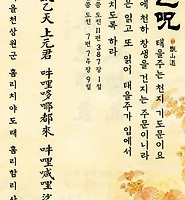 呪
태을주는 천지 기도문이요
에 천하 창생을 건지는 주문이니라
은 읽고 또 읽어 태을주가 입에서
치도록 하라
도전 11편 387장 1절
도전 7편 장 9절
乙天上元君 吽哩哆哪都來 吽哩喊哩
을천상원군 훔리치야도래 훔리함리사